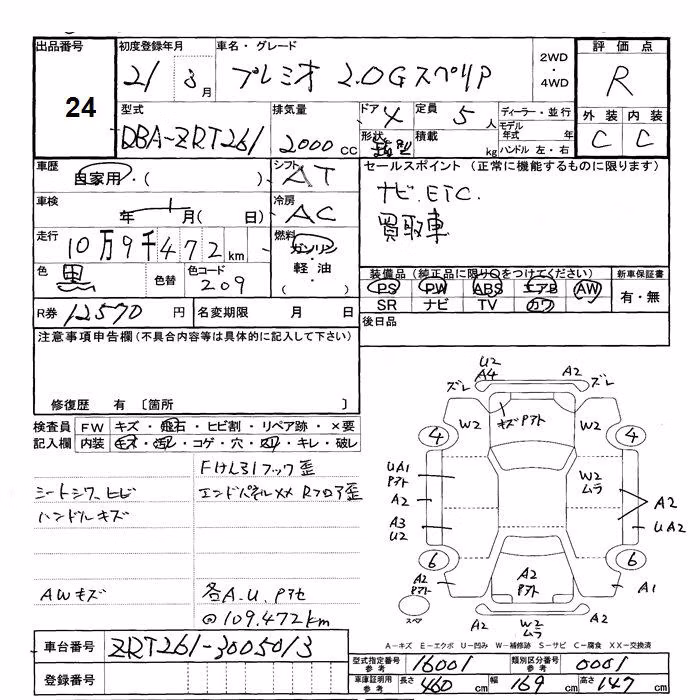 出品番号 24
初度登録年月 21 3月
車名・グレード プレミオ 2.0GスペリP
2WD・4WD
評価点 R
型式 DBA-ZRT261
排気量 2000cc
ドア 4 定員 5人
形状 積載 kg
ディーラー・並行
モデル年式 年
ハンドル 左・右
外装 内装
C C
車歴 自家用・( )
シフト AT
セールスポイント (正常に機能するものに限ります)
ナビ.ETC.
買取車
車検 年 月( 日)
冷房 AC
走行 10万9千472km
燃料 ガソリン・軽油・( )
色 黒 色替 色コード 209
装備品 (純正品に限り○をつけてください)
PS PW ABS エアB AW
SR ナビ TV カワ
新車保証書 有・無
R券 12570円
名変期限 月 日
後日品
注意事項申告欄(不具合内容等は具体的に記入して下さい)
修復歴 有 〔箇所 〕
検査員記入欄
FW キズ・飛石・ヒビ割・リペア跡・×要
内装 キズ・汚レ・コゲ・穴・スリ・キレ・破レ
FけんひLフック歪
シートシワ、ヒビ エンドパネルXX Rフロア歪
ハンドルキズ
AWキズ 各A.U.Pアセ
@109.472km
車台番号 ZRT261-3005013
登録番号
U2
A4
ズレ
A2
ズレ
W2
キズPアト
W2
4
4
UA1
Pアト
A2
W2
ムラ
A2
A3
U2
UA2
6
6
A2
Pアト
A2
Pアト
A1
スペア
W2
ムラ
A2
A-キズ E-エクボ U-凹み W-補修跡 S-サビ C-腐食 XX-交換済
型式指定番号 参考 16001
類別区分番号 参考 0001
車庫証明用 参考 長さ 460cm 幅 169cm 高さ 147cm